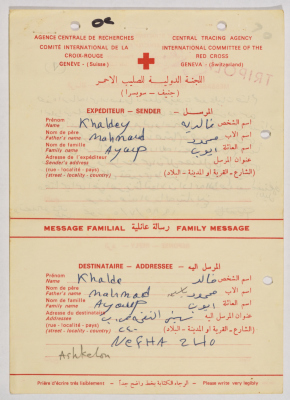 AGENCE CENTRALE DE RECHERCHES
COMITÉ INTERNATIONAL DE LA
CROIX-ROUGE
GENÈVE - (Suisse)
CENTRAL TRACING AGENCY
INTERNATIONAL COMMITTEE OF THE
RED CROSS
GENEVA - (Switzerland)
اللجنة الدولية للصليب الاحمر
(جنيف - سويسرا)
EXPEDITEUR - SENDER - المرسل
Prénom
Name Khaldey اسم الشخص
Nom de père
Father's name Mahmaid محمود اسم الاب
Nom de famille
Family name Ayoup ايوب اسم العائلة
Adresse de l'expéditeur
Sender's address عنوان المرسل
(rue - localité - pays)
(street - locality - country) (الشارع - القرية او المدينة - البلاد)
MESSAGE FAMILIAL رسالة عائلية FAMILY MESSAGE
DESTINATAIRE - ADDRESSEE - المرسل اليه
Prénom
Name Khalde خالد اسم الشخص
Nom de père
Father's name Mahmad محمود اسم الاب
Nom de famille
Family name Ayoup ايوب اسم العائلة
Adresse du destinataire
Addressee عنوان المرسل اليه
(rue - localité - pays)
(street - locality - country) (الشارع - القرية او المدينة - البلاد)
NEFHA 240
Ashkelon
Prière d'écrire très lisiblement - الرجاء الكتابة بخط واضح جداً - Please write very legibly